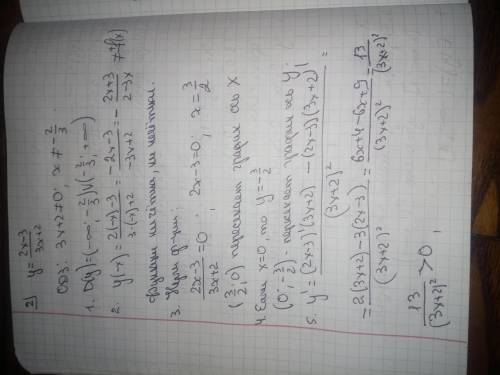 2) y = (2x-3)/(3x+2)
ОДЗ: 3x+2≠0; x ≠ -2/3
1. D(y) = (-∞; -2/3)∪(-2/3; +∞)
2. y(-x) = (2·(-x)-3)/(3·(-x)+2) = (-2x-3)/(-3x+2) = - (2x+3)/(2-3x) ≠ f(x)
Функция ни чётна, ни нечётна.
3. Нули ф-ции:
(2x-3)/(3x+2) = 0, 2x-3=0; x = 3/2
(3/2; 0) пересекает график ось x
4. Если x=0, то y = -3/2
(0; -3/2) - пересекает график ось y
5. y' = ((2x-3)'(3x+2) - (2x-3)(3x+2)')/(3x+2)² =
= (2(3x+2) - 3(2x-3))/(3x+2)² = (6x+4-6x+9)/(3x+2)² = 13/(3x+2)²
13/(3x+2)² > 0,